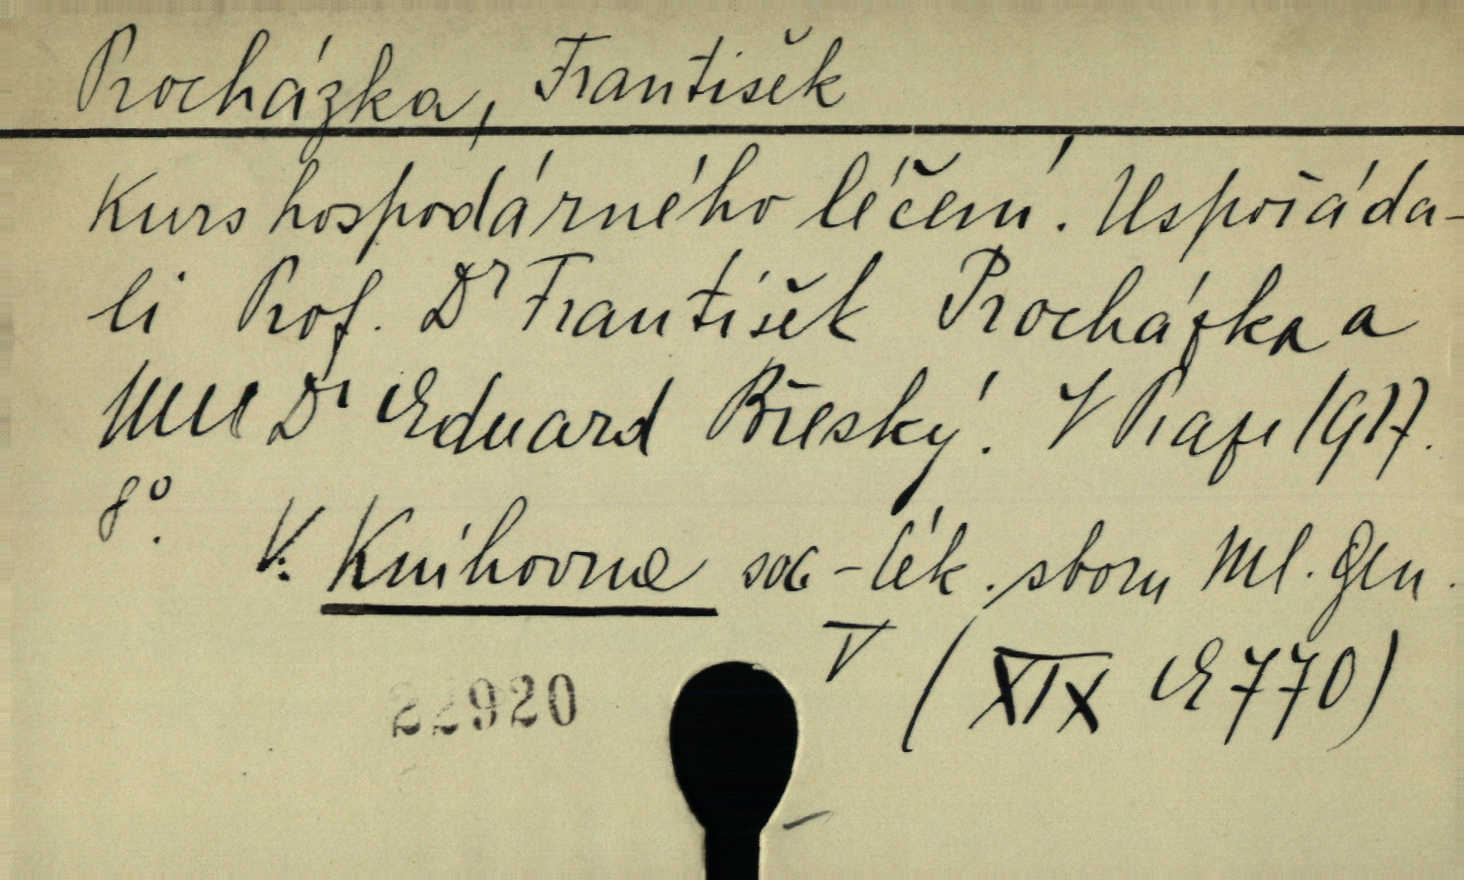 Procházka, František
Kurs hospodárného léčení. Uspořáda-
li Prof. Dr František Procházka a
MU Dr Eduard Břeský. V Praze 1917.
8°.
V: Knihovna soc-lék. sboru Ml. Gen.
V (XIX E 770)
22920